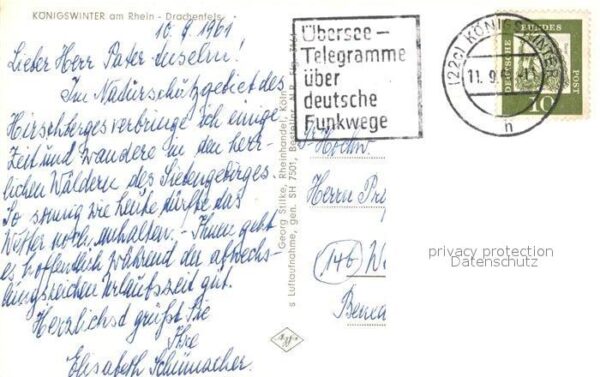 KÖNIGSWINTER am Rhein - Drachenfels
10.9.1961
Lieber Herr Pater Anselm!
Im Naturschutzgebiet des
Hirschberges verbringe ich einige
Zeit und wandere in den herr-
lichen Wäldern des Siebengebirges.
So sonnig wie heute dürfte das
Wetter noch anhalten. - Ihnen geht
es hoffentlich während der abwechs-
lungsreichen Urlaubszeit gut.
Herzlichst grüßt Sie
Ihre
Elisabeth Schumacher.
Georg Stilke, Rheinhandel, Köln
s Luftaufnahme, gen. SH 7501, Bestellnr.
Übersee-
Telegramme
über
deutsche
Funkwege
(22c) KÖNIGSWINTER
11.9.
n
DEUTSCHE BUNDESPOST
10
Hochw.
Herrn
(14b) W
privacy protection
Datenschutz